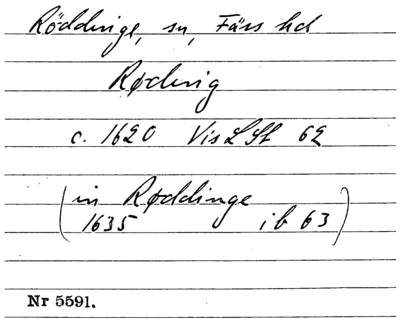 Röddinge, sn, Färs hd
Rødvig
c. 1620 VisLSt 62
(in Røddinge
1635 ib 63)
Nr 5591.